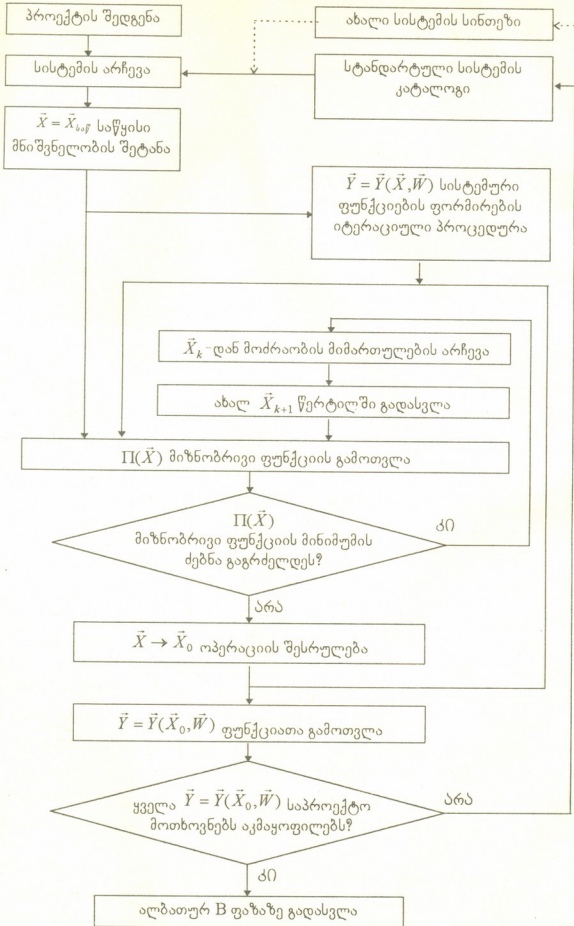 პროექტის შედგენა
ახალი სისტემის სინთეზი
სისტემის არჩევა
სტანდარტული სისტემის
კატალოგი
X⃗ = X⃗საწ საწყისი
მნიშვნელობის შეტანა
Y⃗ = Y⃗(X⃗,W⃗) სისტემური
ფუნქციების ფორმირების
იტერაციული პროცედურა
X⃗k-დან მოძრაობის მიმართულების არჩევა
ახალ X⃗k+1 წერტილში გადასვლა
Π(X⃗) მიზნობრივი ფუნქციის გამოთვლა
Π(X⃗)
მიზნობრივი ფუნქციის მინიმუმის
ძებნა გაგრძელდეს?
კი
არა
X⃗ → X⃗0 ოპერაციის შესრულება
Y⃗ = Y⃗(X⃗0,W⃗) ფუნქციათა გამოთვლა
ყველა Y⃗ = Y⃗(X⃗0,W⃗) საპროექტო
მოთხოვნებს აკმაყოფილებს?
არა
კი
ალბათურ B ფაზაზე გადასვლა